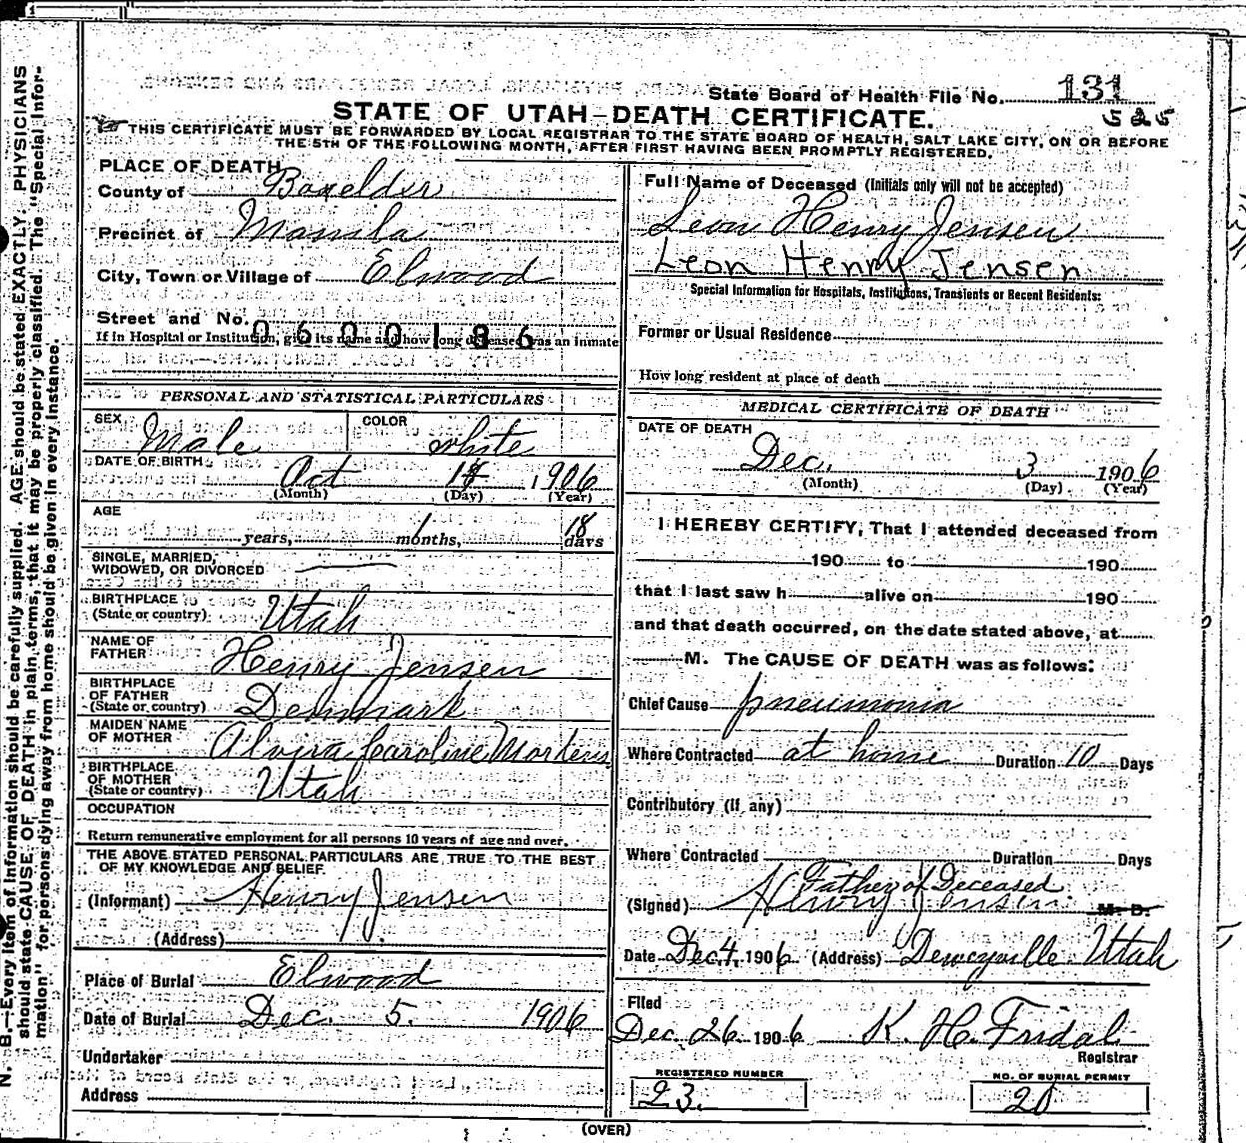 State Board of Health File No. 131
525
STATE OF UTAH-DEATH CERTIFICATE.
THIS CERTIFICATE MUST BE FORWARDED BY LOCAL REGISTRAR TO THE STATE BOARD OF HEALTH, SALT LAKE CITY, ON OR BEFORE
THE 5TH OF THE FOLLOWING MONTH, AFTER FIRST HAVING BEEN PROMPTLY REGISTERED.
PLACE OF DEATH
County of Boxelder
Precinct of Manila
City, Town or Village of Elwood
Street and No.
0600186
If in Hospital or Institution, give its name and how long deceased was an inmate
PERSONAL AND STATISTICAL PARTICULARS
SEX Male COLOR white
DATE OF BIRTH Oct 1906
(Month) (Day) (Year)
AGE
years, 1 months, 18 days
SINGLE, MARRIED,
WIDOWED, OR DIVORCED
BIRTHPLACE
(State or country) Utah
NAME OF
FATHER Henry Jensen
BIRTHPLACE
OF FATHER
(State or country) Denmark
MAIDEN NAME
OF MOTHER Alvira Caroline Mortens
BIRTHPLACE
OF MOTHER
(State or country) Utah
OCCUPATION
Return remunerative employment for all persons 10 years of age and over.
THE ABOVE STATED PERSONAL PARTICULARS ARE TRUE TO THE BEST
OF MY KNOWLEDGE AND BELIEF.
(Informant) Henry Jensen
(Address)
Place of Burial Elwood
Date of Burial Dec. 5. 1906
Undertaker
Address
Full Name of Deceased (Initials only will not be accepted)
Leon Henry Jensen
Leon Henry Jensen
Special Information for Hospitals, Institutions, Transients or Recent Residents:
Former or Usual Residence
How long resident at place of death
MEDICAL CERTIFICATE OF DEATH
DATE OF DEATH
Dec. 3 1906
(Month) (Day) (Year)
I HEREBY CERTIFY, That I attended deceased from
190 to 190
that I last saw h alive on 190
and that death occurred, on the date stated above, at
M. The CAUSE OF DEATH was as follows:
Chief Cause pneumonia
Where Contracted at home Duration 10 Days
Contributory (if any)
Where Contracted Duration Days
Father of Deceased
(Signed) Henry Jensen M. D.
Date Dec 4, 1906 (Address) Deweyville Utah
Filed
Dec. 26 1906 K. H. Fridal
Registrar
REGISTERED NUMBER
23.
NO. OF BURIAL PERMIT
20
(OVER)
N. B.—Every item of information should be carefully supplied. AGE should be stated EXACTLY. PHYSICIANS
should state CAUSE OF DEATH in plain terms, that it may be properly classified. The "Special Infor-
mation" for persons dying away from home should be given in every instance.